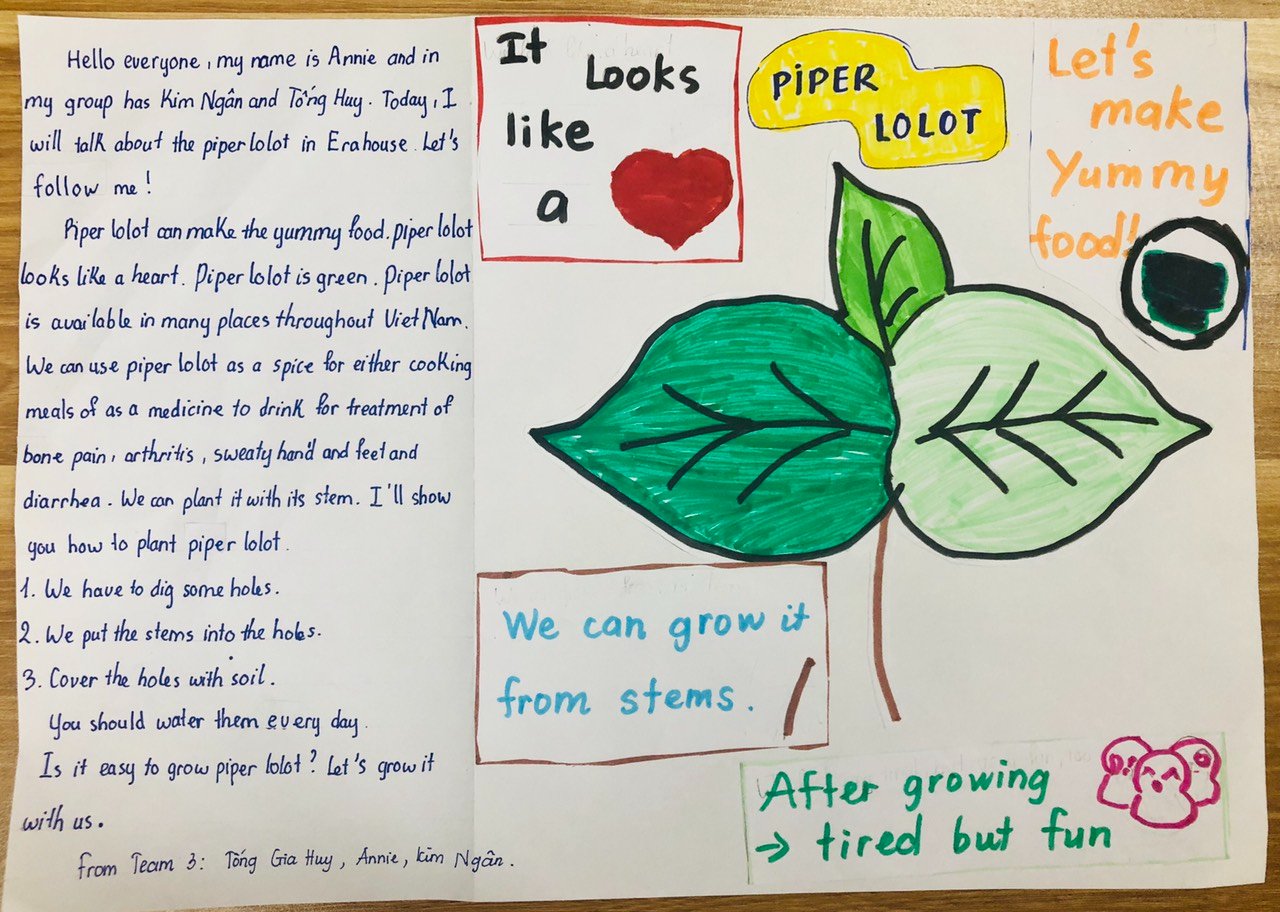 Hello everyone, my name is Annie and in
my group has Kim Ngân and Tống Huy. Today, I
will talk about the piper lolot in Erahouse. Let's
follow me!
Piper lolot can make the yummy food. Piper lolot
looks like a heart. Piper lolot is green. Piper lolot
is available in many places throughout Viet Nam.
We can use piper lolot as a spice for either cooking
meals of as a medicine to drink for treatment of
bone pain, arthritis, sweaty hand and feet and
diarrhea. We can plant it with its stem. I'll show
you how to plant piper lolot.
1. We have to dig some holes.
2. We put the stems into the holes.
3. Cover the holes with soil.
You should water them every day.
Is it easy to grow piper lolot? Let's grow it
with us.
from Team 3: Tống Gia Huy, Annie, Kim Ngân.
It
Looks
like
a
PiPER
LOLOT
Let's
make
Yummy
food!
We can grow it
from stems.
After growing
→ tired but fun